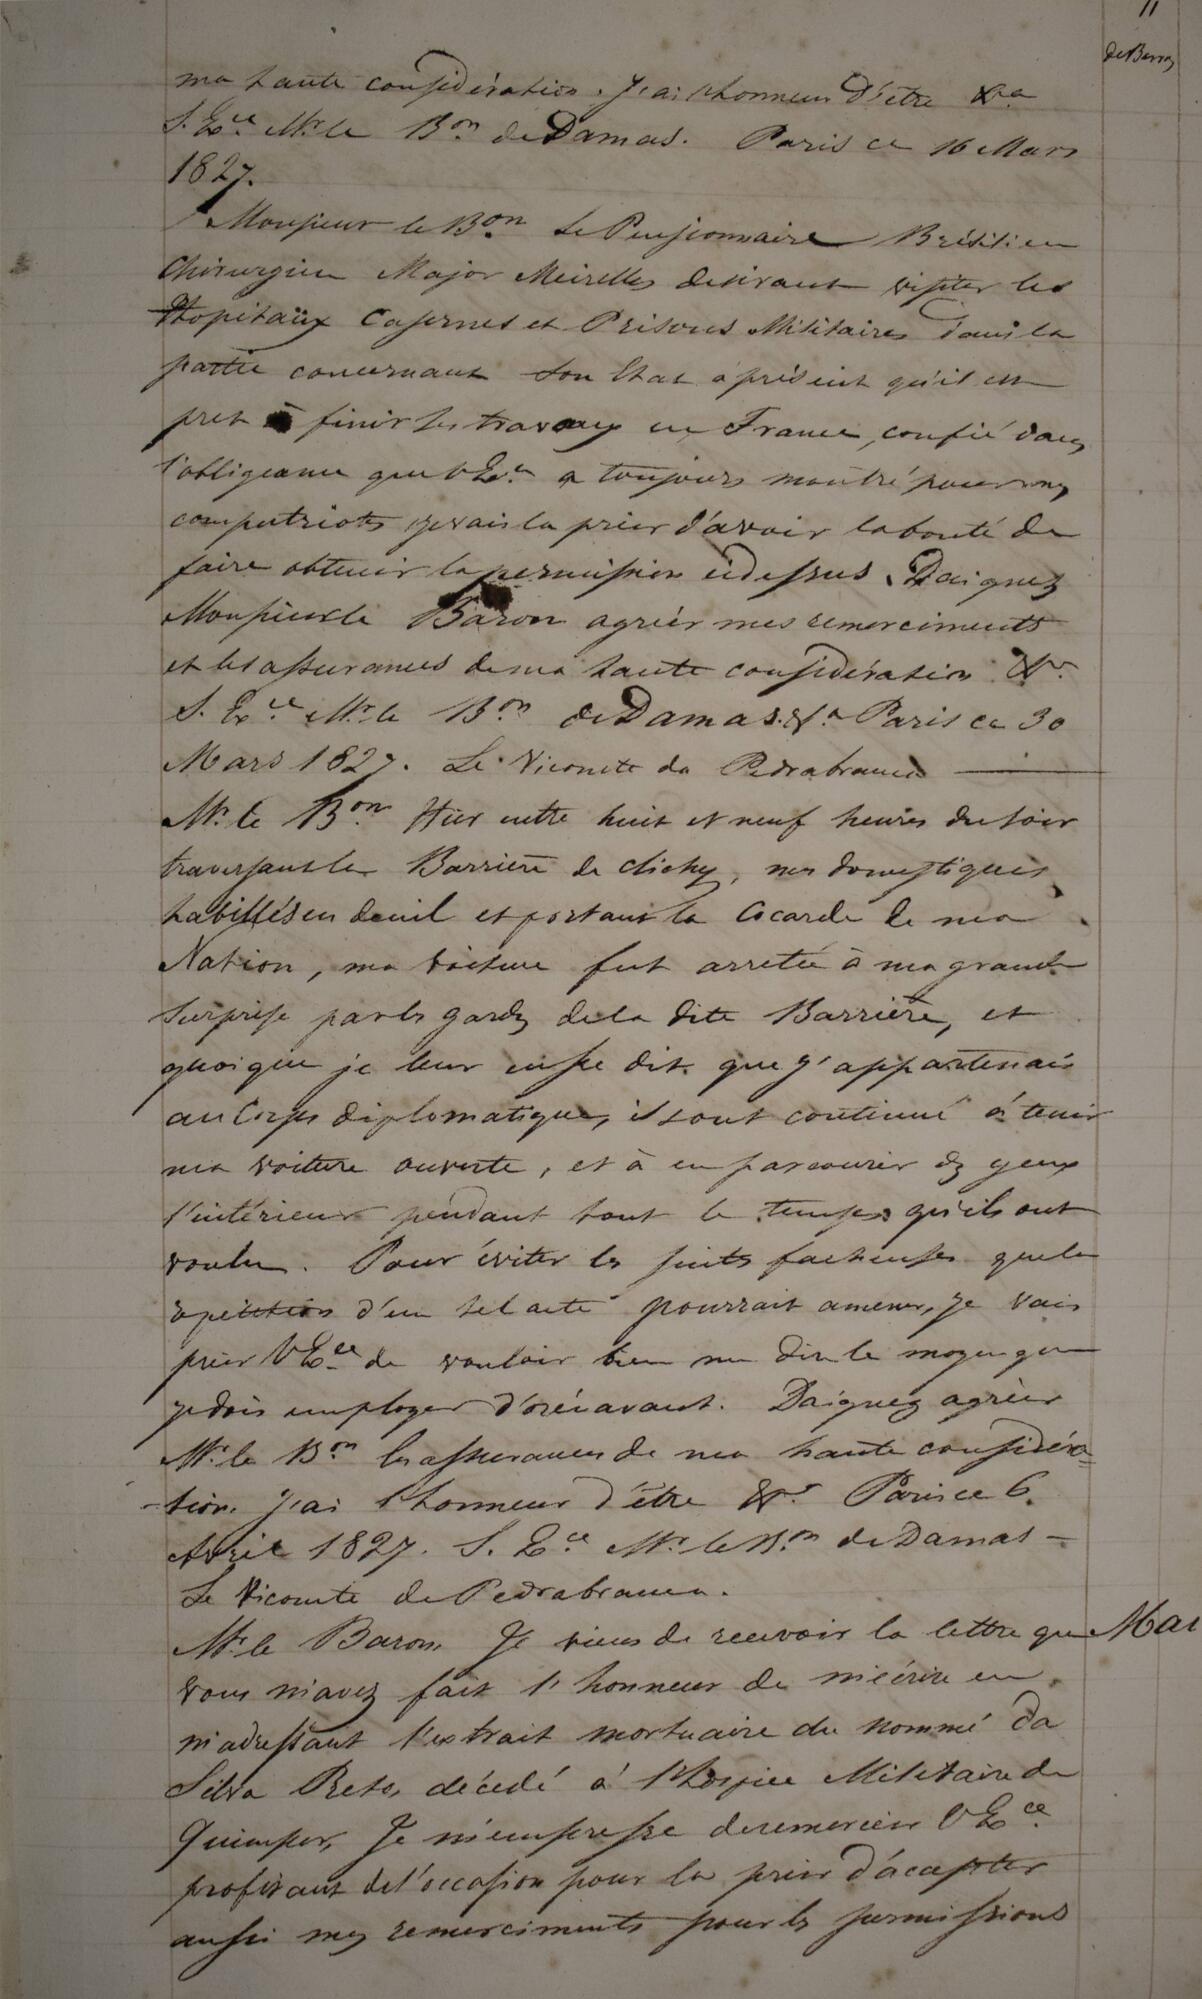 11
de Barros
ma haute considération. J'ai l'honneur d'être &ra
S. Exce Mr. le Bon. de Damas. Paris ce 16 Mars
1827.
Monsieur le Bon. Le Pensionnaire Brésilien
Chirurgien Major Meirelles desirant visiter les
Hopitaüx Casernes et Prisons Militaires dans la
partie concernant son Etat à présent qu'il est
pret à finir ses travaux en France, confié dans
l'obligeance que V Exce. a toujours montré pour mes
compatriotes je vais la prier d'avoir la bonté de
faire obtenir la permission cidessus. Daignez
Monsieur le Baron agriér mes remerciments
et les assurances de ma haute considération &ra
S. Exce Mr. le Bon. de Damas. &a Paris ce 30
Mars 1827. Le Vicomte da Pedrabranca
Mr. le Bon. Hier entre huit et neuf heures du soir
traversant la Barrière de Clichy, mes domestiques
habillés en deuil et portant la Cocarde de ma
Nation, ma voiture fut arretée à ma grande
surprise par les gardes de la dite Barrière, et
quoique je leur eusse dit que j'appartenais
au Corps diplomatique, ils ont continué à tenir
ma voiture ouverte, et à en parcourir des yeux
l'intérieur pendant tout le temps qu'ils ont
voulu. Pour éviter les suites facheuses que la
repetition d'un tel acte pourrait amener, je vais
prier V Exce de vouloir bien me dire le moyen que
je dois employer d'orénavant. Daignez agriér
Mr. le Bon les assurances de ma haute considéra=
-tion. J'ai l'honneur d'être &ra Paris ce 6
Avril 1827. S. Exce Mr. le Bon de Damas -
Le Vicomte de Pedrabranca.
Mr. le Baron, Je viens de recevoir la lettre que
vous m'avez fait l'honneur de m'écrire en
m'adressant l'extrait mortuaire du nommé da
Silva Preto, décédé à l'hospice Militaire de
Quimper, Je m'empresse de remercier V Exce
profitant de l'occasion pour la prier d'acapter
aussi mes remerciments pour les permissions
Mar